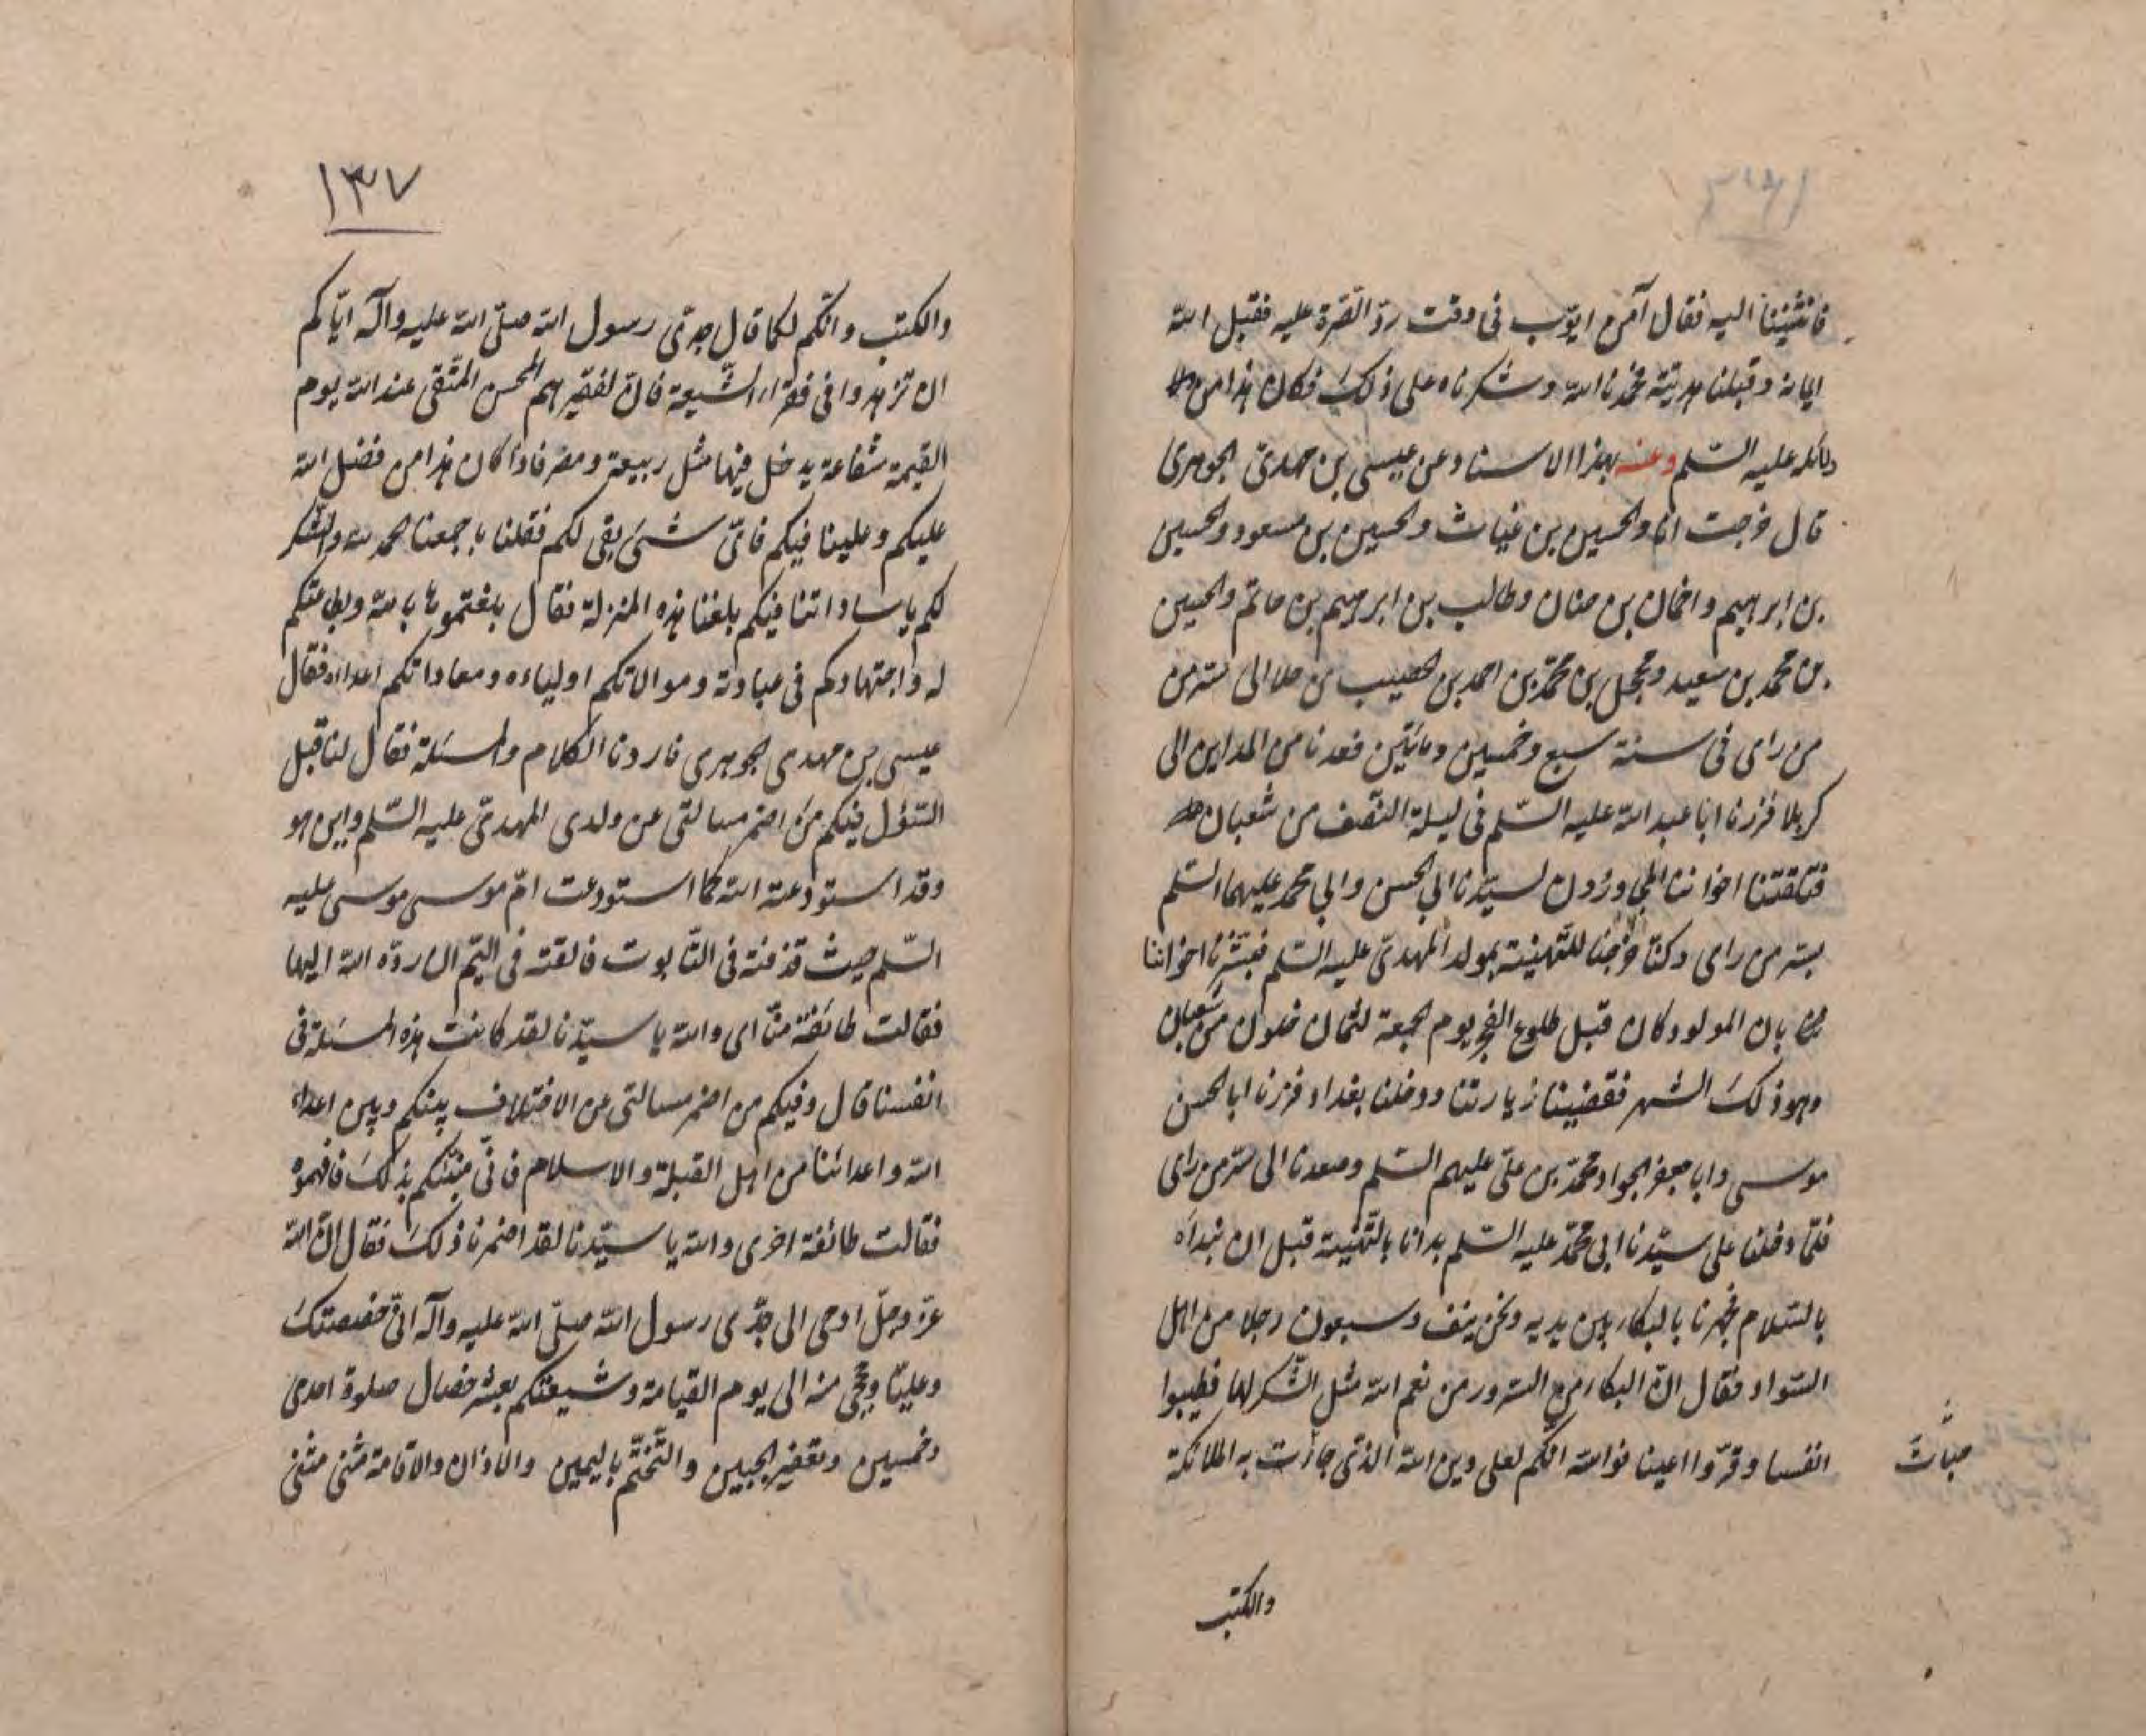 فانثنينا اليه فقال آمن ايّوب فى وقت ردّ الصّرة عليه فقبل اللّه
ايمانه وقبلنا هديّته فحمدنا اللّه وشكرناه على ذلك فكان هذا من
دلائله عليه السّلم وعنه بهذا الاسناد عن عيسى بن مهدىّ الجوهرى
قال خرجت انا والحسين بن غياث والحسين بن مسعود والحسين
بن ابرهيم واخمان بن حنان وطالب بن ابرهيم بن حاتم والحسين
بن محمد بن سعيد ومحجل بن محمّد بن احمد بن الخصيب من حلا الى سّر من
من راى فى سنة سبع وخمسين ومائتين فعدنا من المداين الى
كربلا فزرنا ابا عبد اللّه عليه السّلم فى ليلة النّصف من شعبان
فتلقتنا اخواننا المجاورون لسيّدنا ابى الحسن وابى محمد عليهما السّلم
بسّر من راى وكنّا خرجنا للتّهنية بمولد المهدىّ عليه السّلم فبشّرنا اخواننا
بان المولود كان قبل طلوع الفجر يوم الجمعة لثمان خلون من شعبان
وهو ذلك الشهر فقضينا زيارتنا ودخلنا بغداد فزرنا ابا الحسن
موسى وابا جعفر الجواد محمّد بن علىّ عليهم السّلم وصعدنا الى سّر من راى
فلمّا دخلنا على سيّدنا ابى محمّد عليه السّلم بدانا بالتّهنية قبل ان نبداه
بالسّلام فجهرنا بالبكاء بين يديه ونحن نيف وسبعون رجلا من اهل
السّواد فقال انّ البكاء من السّرور من نعم اللّه مثل الشّكر لها فطيبوا
انفسا وقرّوا اعينا فواللّه انّكم لعلى دين اللّه الذى جاءت به الملائكة
والكتب
١٣٧
والكتب وانّكم لكما قال جدّى رسول اللّه صلّى اللّه عليه وآله ايّاكم
ان تزهدوا فى فقراء الشّيعة فانّ لفقيرهم المحسن المتّقى عند اللّه يوم
القيمة شفاعة يدخل فيها مثل ربيعة ومضر فاذا كان هذا من فضل اللّه
عليكم وعلينا فيكم فاىّ شىء بقى لكم فقلنا باجمعنا الحمد للّه والشّكر
لكم يا ساداتنا فبكم بلغنا هذه المنزلة فقال بلغتموها باللّه وبطاعتكم
له واجتهادكم فى عبادته وموالاتكم اولياءه ومعاداتكم اعداءه فقال
عيسى بن مهدى الجوهرى فاردنا الكلام والمسئلة فقال لنا قبل
السّؤل فيكم من اضمر مسالتى عن ولدى المهدىّ عليه السّلم واين هو
وقد استودعته اللّه كما استودعت امّ موسى موسى عليه
السّلم حيث قذفته فى التّابوت فالقته فى اليّم الى ان ردّه اللّه اليها
فقالت طائفة منّا اى واللّه يا سيّدنا لقد كانت هذه المسئلة فى
انفسنا قال وفيكم من اضمر مسالتى عن الاختلاف بينكم وبين اعداء
اللّه واعدائنا من اهل القبلة والاسلام فانّى منبّئكم بذلك فافهموه
فقالت طائفة اخرى واللّه يا سيّدنا لقد اضمرنا ذلك فقال انّ اللّه
عزّ وجلّ اوحى الى جدّى رسول اللّه صلّى اللّه عليه وآله انّى خصصتك
وعليّا وحججى منه الى يوم القيامة وشيعتكم بعشر خصال صلوة احدى
وخمسين وتعفير الجبين والتّختّم باليمين والاذان والاقامة مثنى مثنى